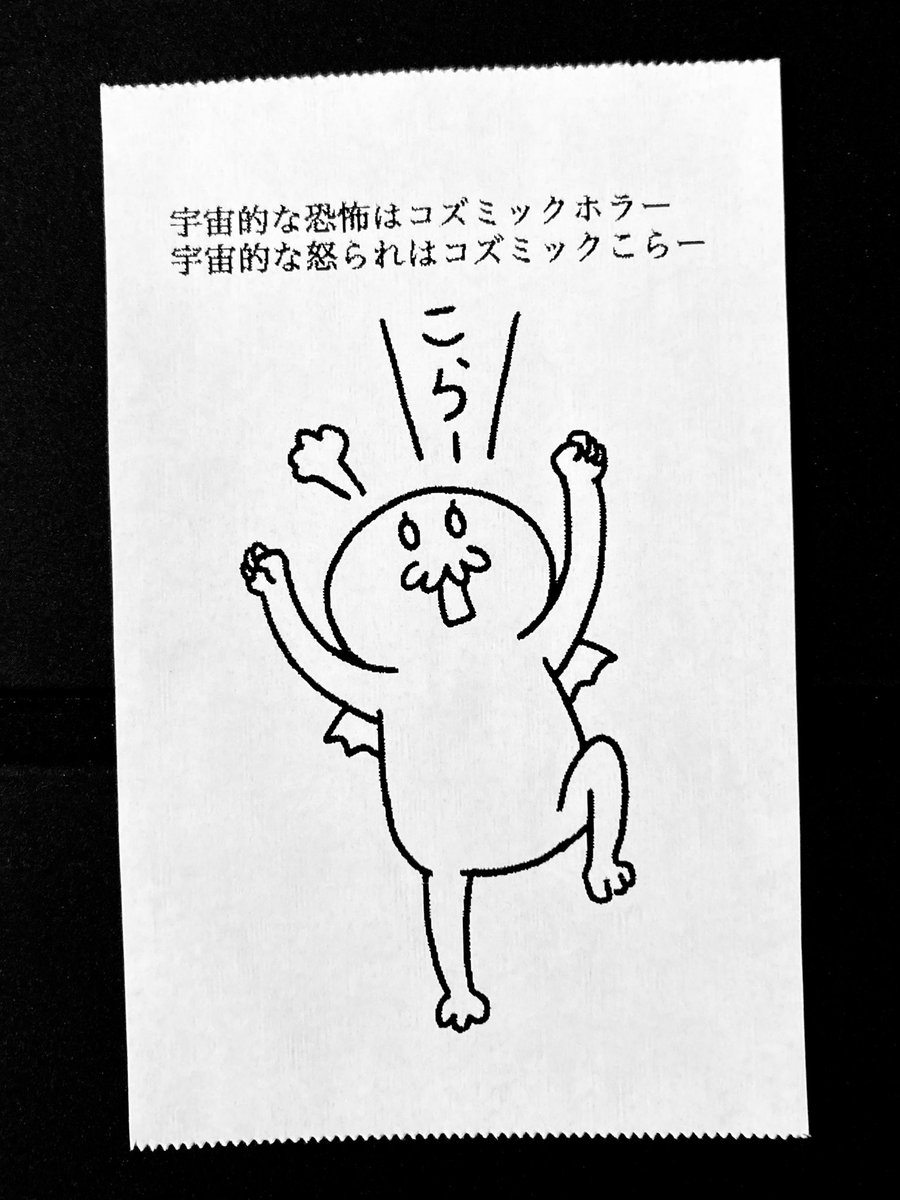 宇宙的な恐怖はコズミックホラー
宇宙的な怒られはコズミックこらー
こらー